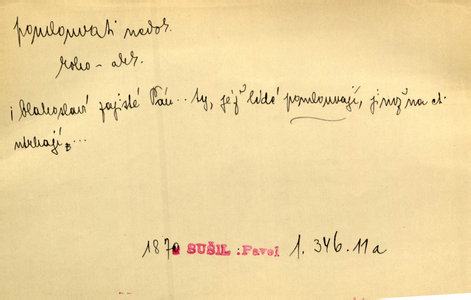 pomlouvati nedok.
koho – akk.
i blahoslaví zajisté Pán.. ty, jež lidé pomlouvají, jimž na cti
utrhají, ...
1870 SUŠIL :Pavel f. 346. 11a